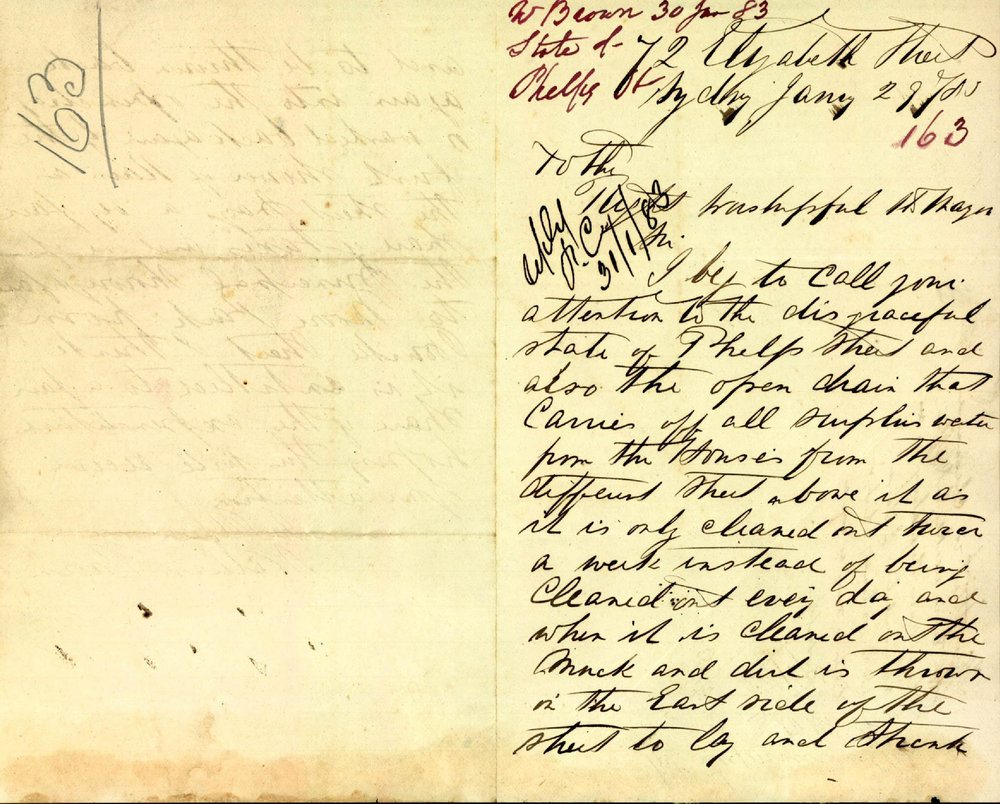 163
W Brown 30 Jan 83
State of
Phelps St
72 Elizabeth Street
Sydney Jany 29
163
To the
Right worshipful the Mayor
Sir.
31/1/83
I beg to Call your
attention to the disgraceful
state of Phelps Street and
also the open drain that
Carries off all surplus water
from the Houses from the
different Street above it as
it is only Cleaned out twice
a week instead of being
Cleaned out every day and
when it is Cleaned out the
Muck and dirt is thrown
on the East side of the
street to lay and Stink